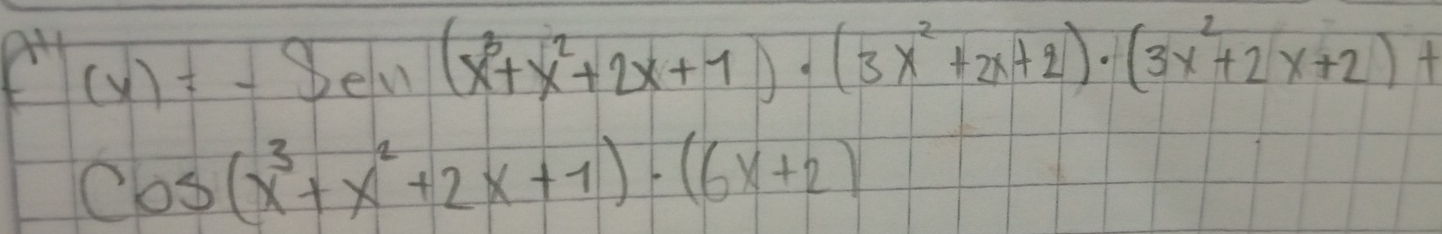 f''(x) = - Sen (x³+x²+2x+1) · (3x²+2x+2) · (3x²+2x+2) +
Cos(x³+x²+2x+1) · (6x+2)